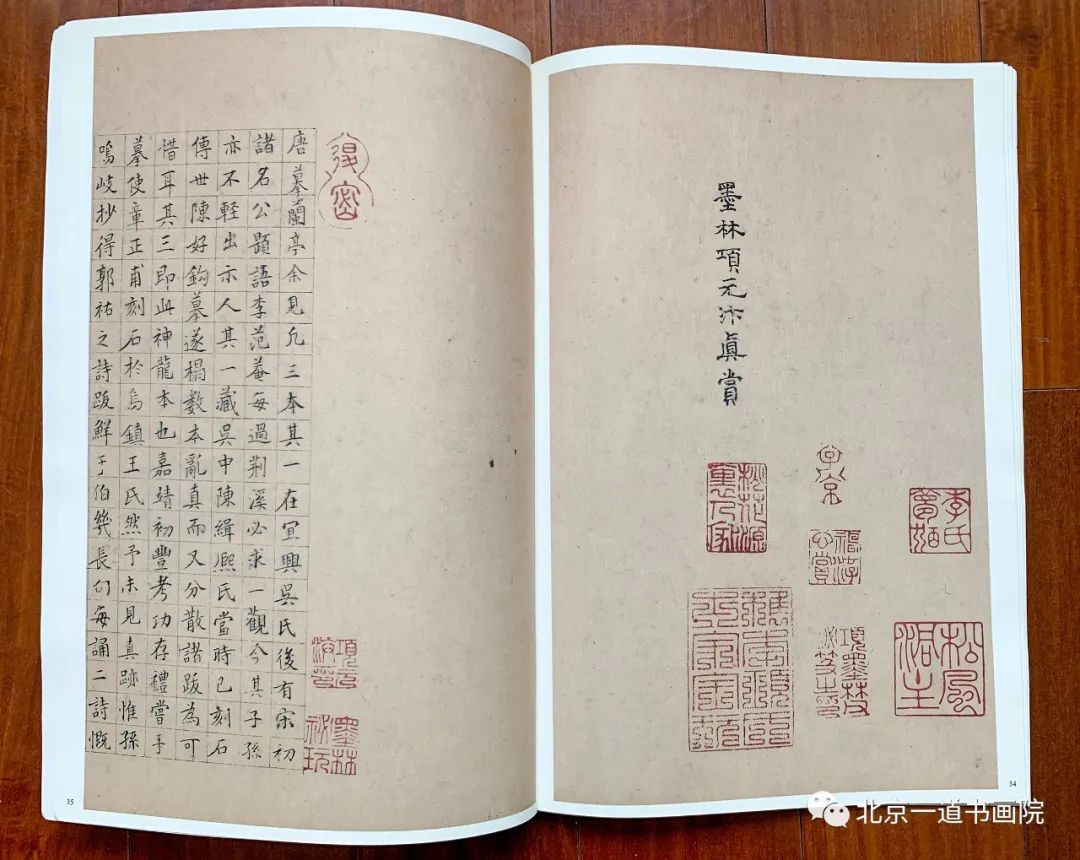 墨林項元汴真賞
子京
桃花源裏人家
墨林秘玩
唐摹蘭亭余見凡三本其一在宜興吳氏後有宋初
諸名公題語李范菴每過荆溪必求一觀今其子孫
亦不輕出示人其一藏吳中陳緝熙氏當時已刻石
傳世陳好鈎摹遂搨數本亂真而又分散諸跋為可
惜耳其三即此神龍本也嘉靖初豐考功存禮嘗手
摹使章正甫刻石於烏鎮王氏然予未見真跡惟孫
鳴岐抄得郭祐之詩跋鮮于伯幾長句每誦二詩慨
34
35
北京一道书画院